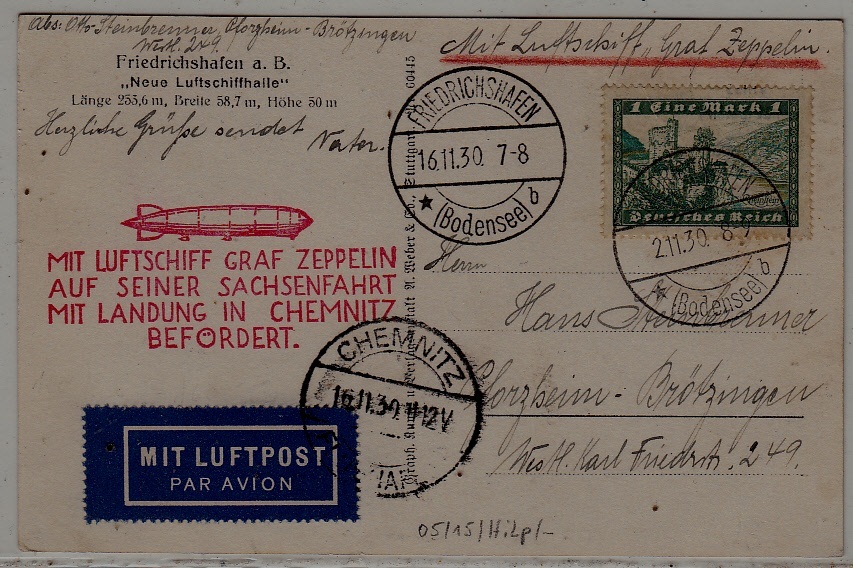 Abs: Otto Steinbrenner, Pforzheim-Brötzingen
Westl. 249.
Friedrichshafen a. B.
„Neue Luftschiffhalle"
Länge 255,6 m, Breite 58,7 m, Höhe 50 m
Herzliche Grüße sendet
Vater.
Mit Luftschiff „Graf Zeppelin.
60445
FRIEDRICHSHAFEN
16.11.30. 7-8
★ (Bodensee) b
1 Eine Mark 1
Deutsches Reich
2.11.30. 8-9
★ (Bodensee) b
MIT LUFTSCHIFF GRAF ZEPPELIN
AUF SEINER SACHSENFAHRT
MIT LANDUNG IN CHEMNITZ
BEFÖRDERT.
A. Weber & Co., Stuttgart.
CHEMNITZ
16.11.30. 11-12V
MIT LUFTPOST
PAR AVION
Herrn
Hans Steinbrenner
Pforzheim-Brötzingen
Westl. Karl Friedrstr. 249.